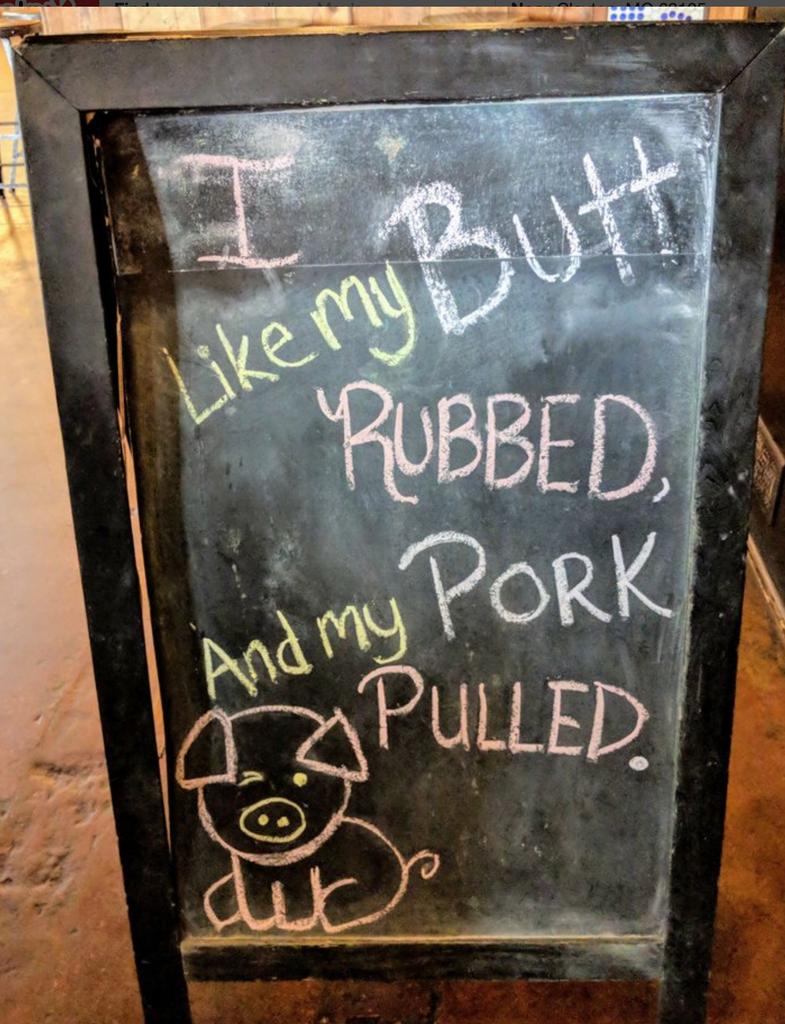 I
Like my Butt
RUBBED,
And my PORK
PULLED.